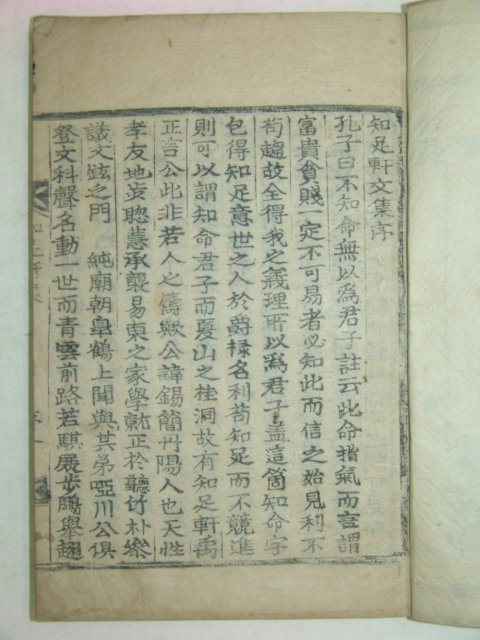 知足軒文集序
孔子曰不知命無以爲君子註云此命指氣而言謂
富貴貧賤一定不可易者必知此而信之始見利不
苟趨故全得我之義理所以爲君子盖這箇知命字
包得知足意世之人於爵祿名利苟知足而不競進
則可以謂知命君子而夏山之桂洞故有知足軒禹
正言公此非若人之儔歟公諱錫簡丹陽人也天性
孝友地步聦慧承襲易東之家學就正於聽竹朴樂
議文鉉之門 純廟朝臯鶴上聞與其弟啞川公俱
登文科聲名動一世而青雲前路若騏展步鴈舉翅